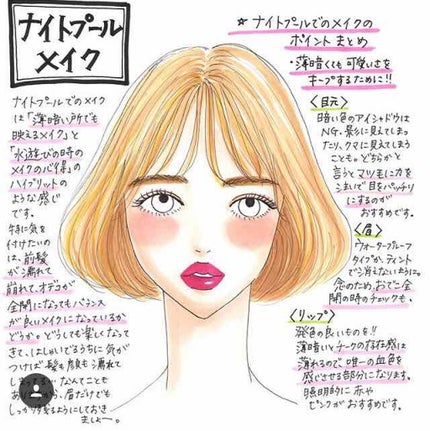 ナイトプール
メイク
ナイトプールでのメイク
は「薄暗い所でも
映えるメイク」と
「水遊びの時の
メイクの心得」の
ハイブリットの
ような感じ
です。
特に気を
付けたいの
は、前髪
が濡れて
崩れて、オデコが
全開になってもバランス
が良いメイクになっているか
どうか。どうしても楽しくなって
きて、はしゃいでるうちに気が
つけば髪も顔も濡れて
しまってる…なんてことも
ありがち。眉だけでも
しっかり残るようにしておき
ましょー。
☆ナイトプールでのメイクの
ポイントまとめ
・薄暗くても可愛いさを
キープするために!!
<目元>
暗い色のアイシャドウは
NG。影に見えてしまっ
たり、クマに見えてしまう
ことも。どちらかと
言うとマツ毛に力を
注いで目をパッチリ
にするのが
おすすめです。
<眉>
ウォータープルーフ
タイプか、ティント
で消えないように。
念のため、おでこ全
開の時のチェックも。
<リップ>
発色の良いものを!!
薄暗いとチークの存在感は
薄れるので唯一の血色を
感じさせる部分になります。
眼明的に赤や
ピンクがおすすめです。